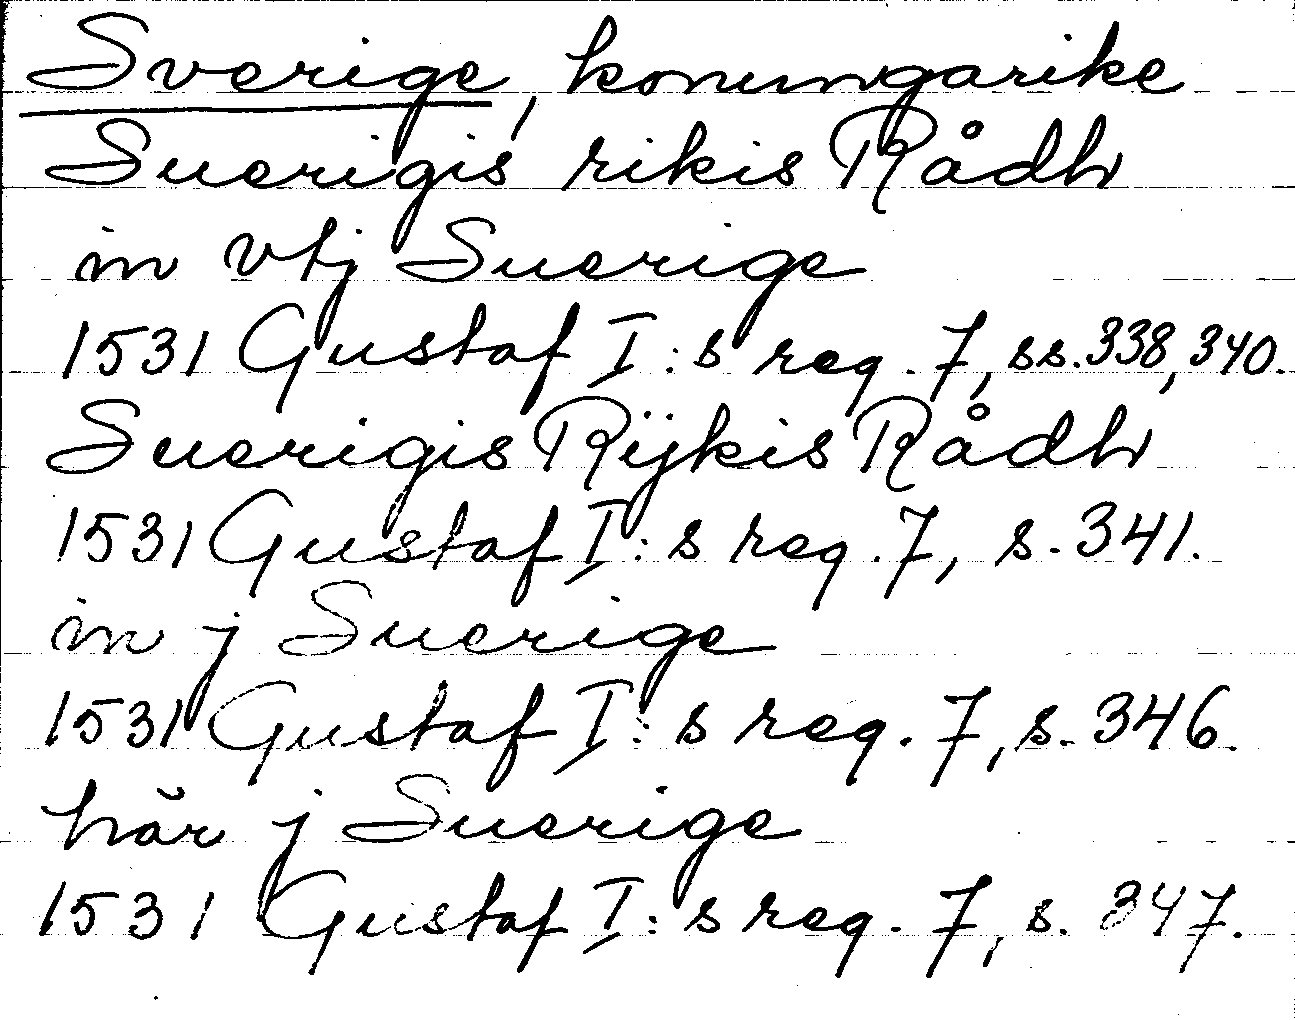 Sverige, konungarike
Suerigis rikis Rådh
in vtj Suerige
1531 Gustaf I:s reg. 7, ss. 338, 340.
Suerigis Rijkis Rådh
1531 Gustaf I:s reg. 7, s. 341.
in j Suerige
1531 Gustaf I:s reg. 7, s. 346.
här j Suerige
1531 Gustaf I:s reg. 7, s. 347.